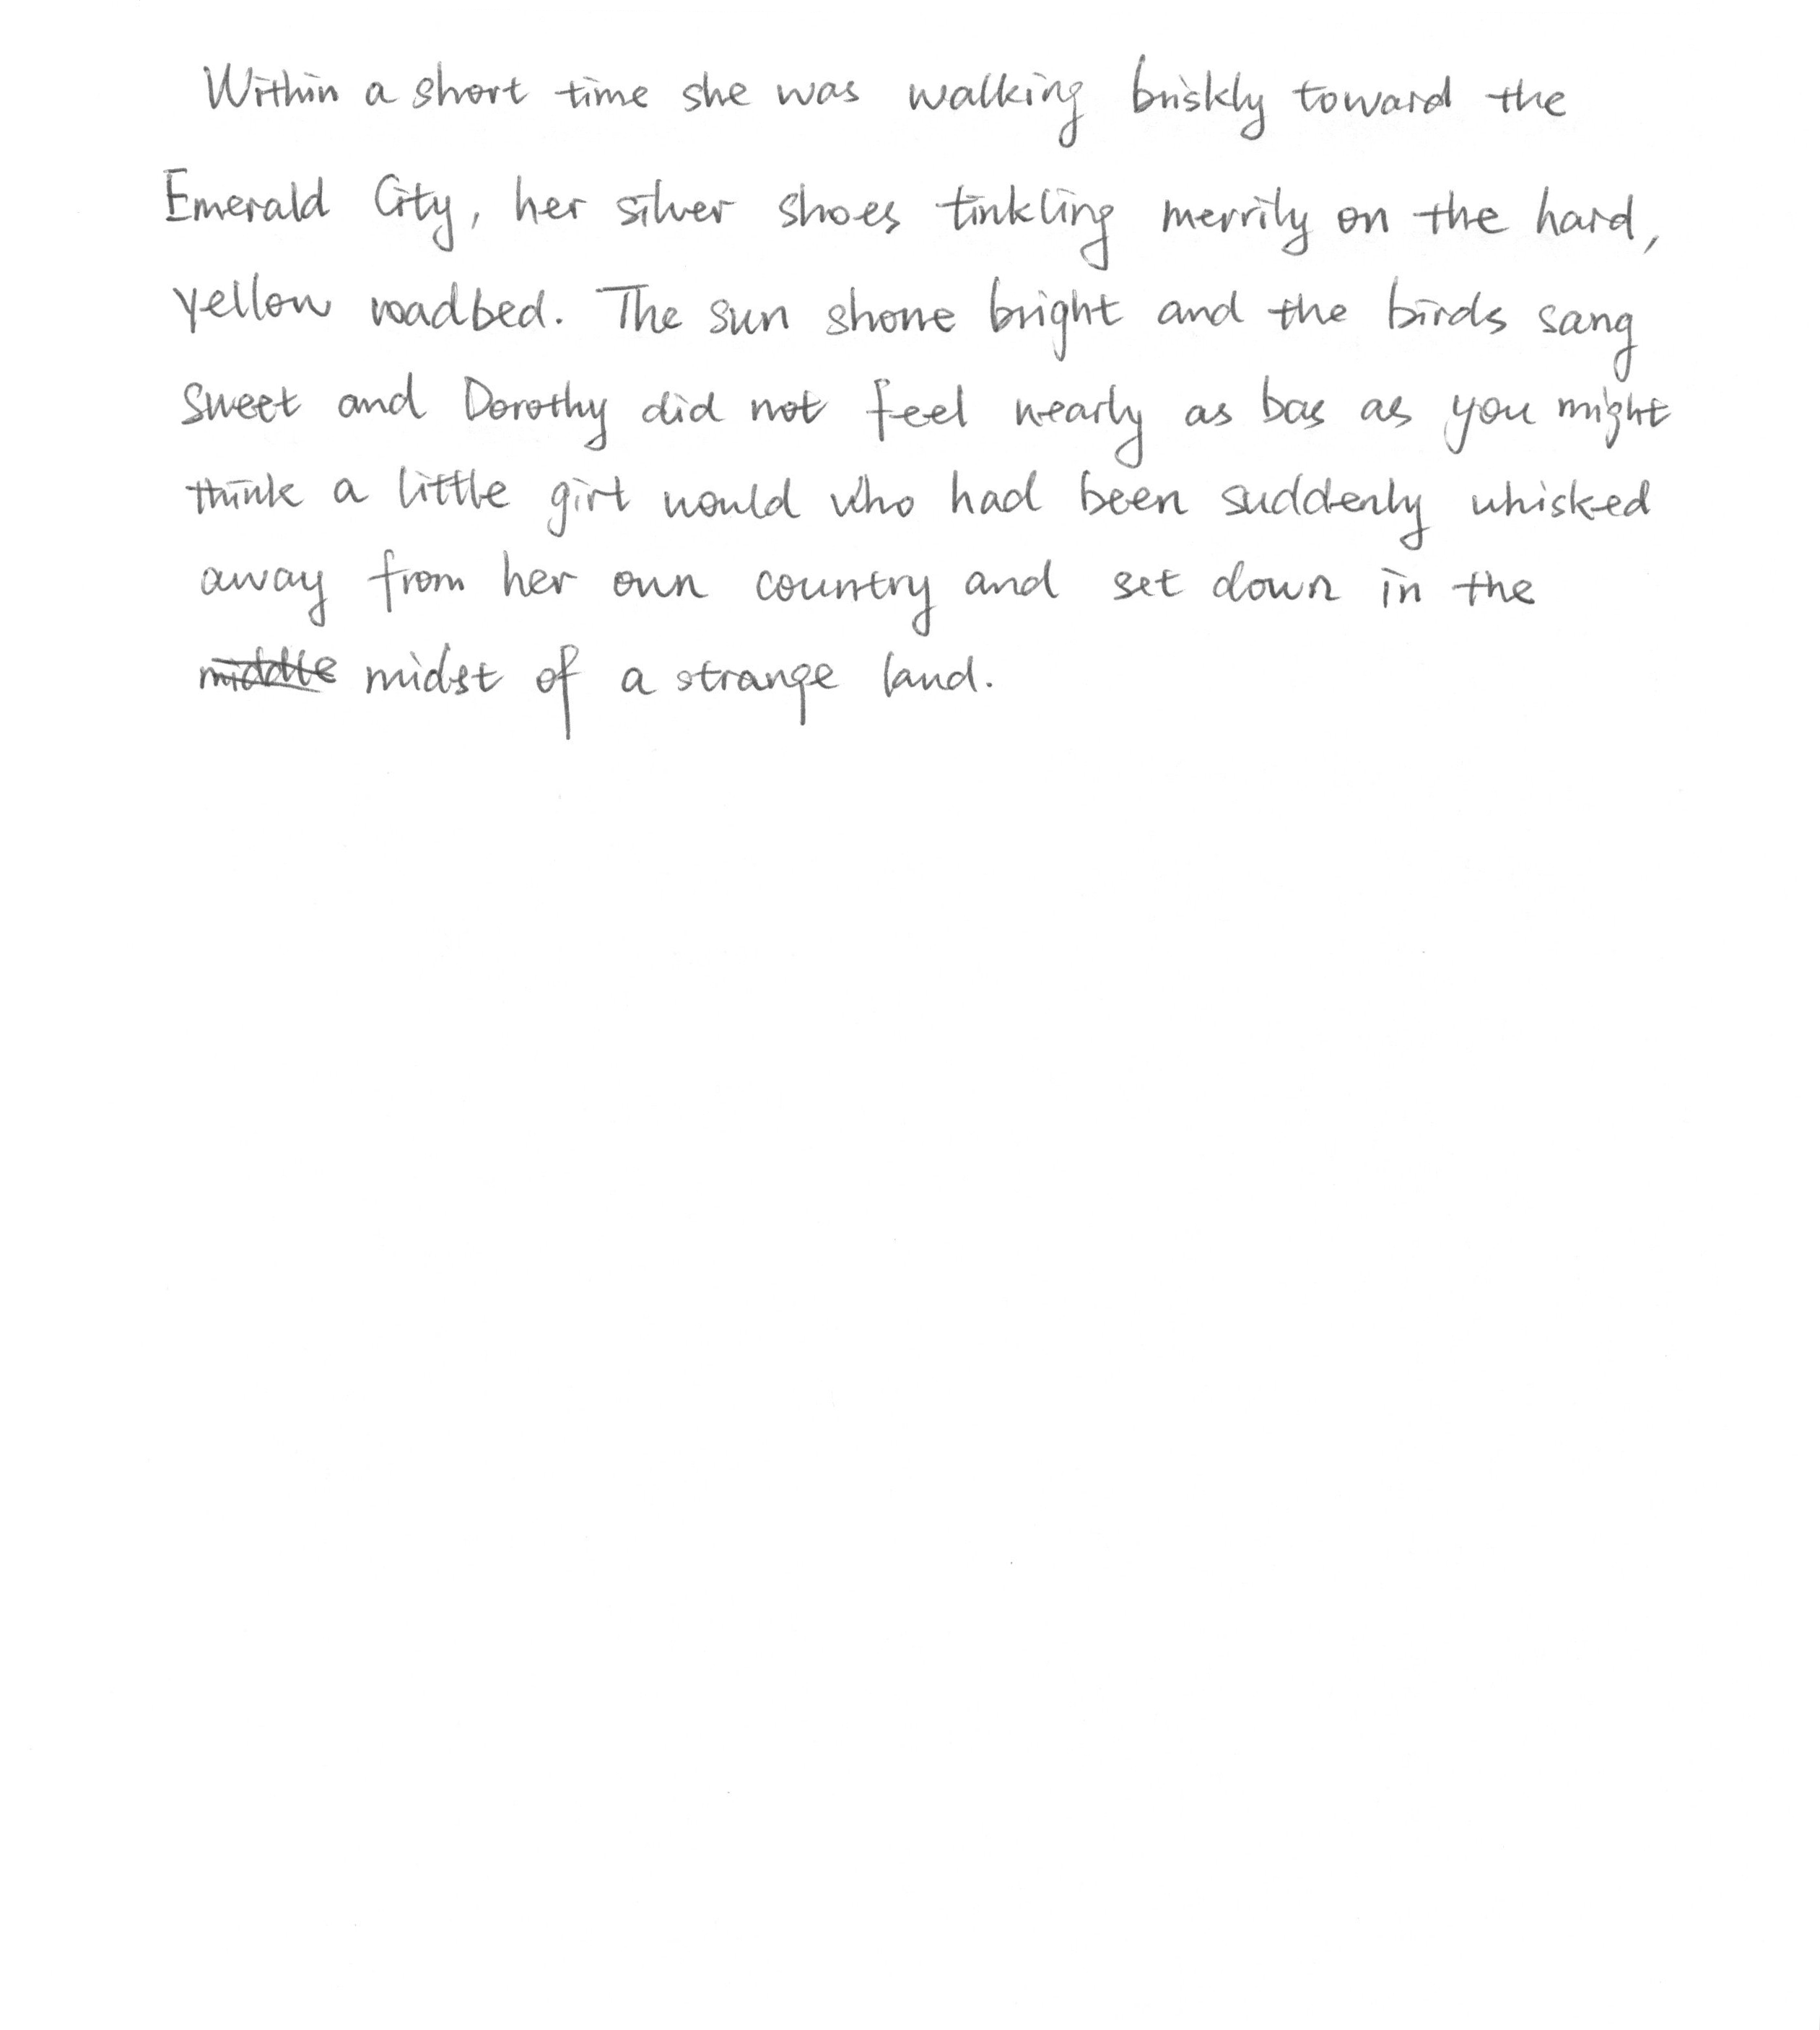 Within a short time she was walking briskly toward the
Emerald City, her silver shoes tinkling merrily on the hard,
yellow roadbed. The sun shone bright and the birds sang
sweet and Dorothy did not feel nearly as bas as you might
think a little girt would who had been suddenly whisked
away from her own country and set down in the
middle midst of a strange land.